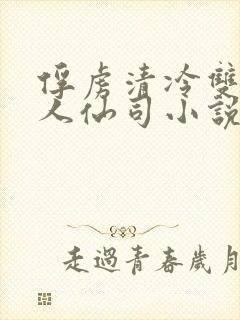 俘虜清冷雙
人仙司小說
走過青春歲月